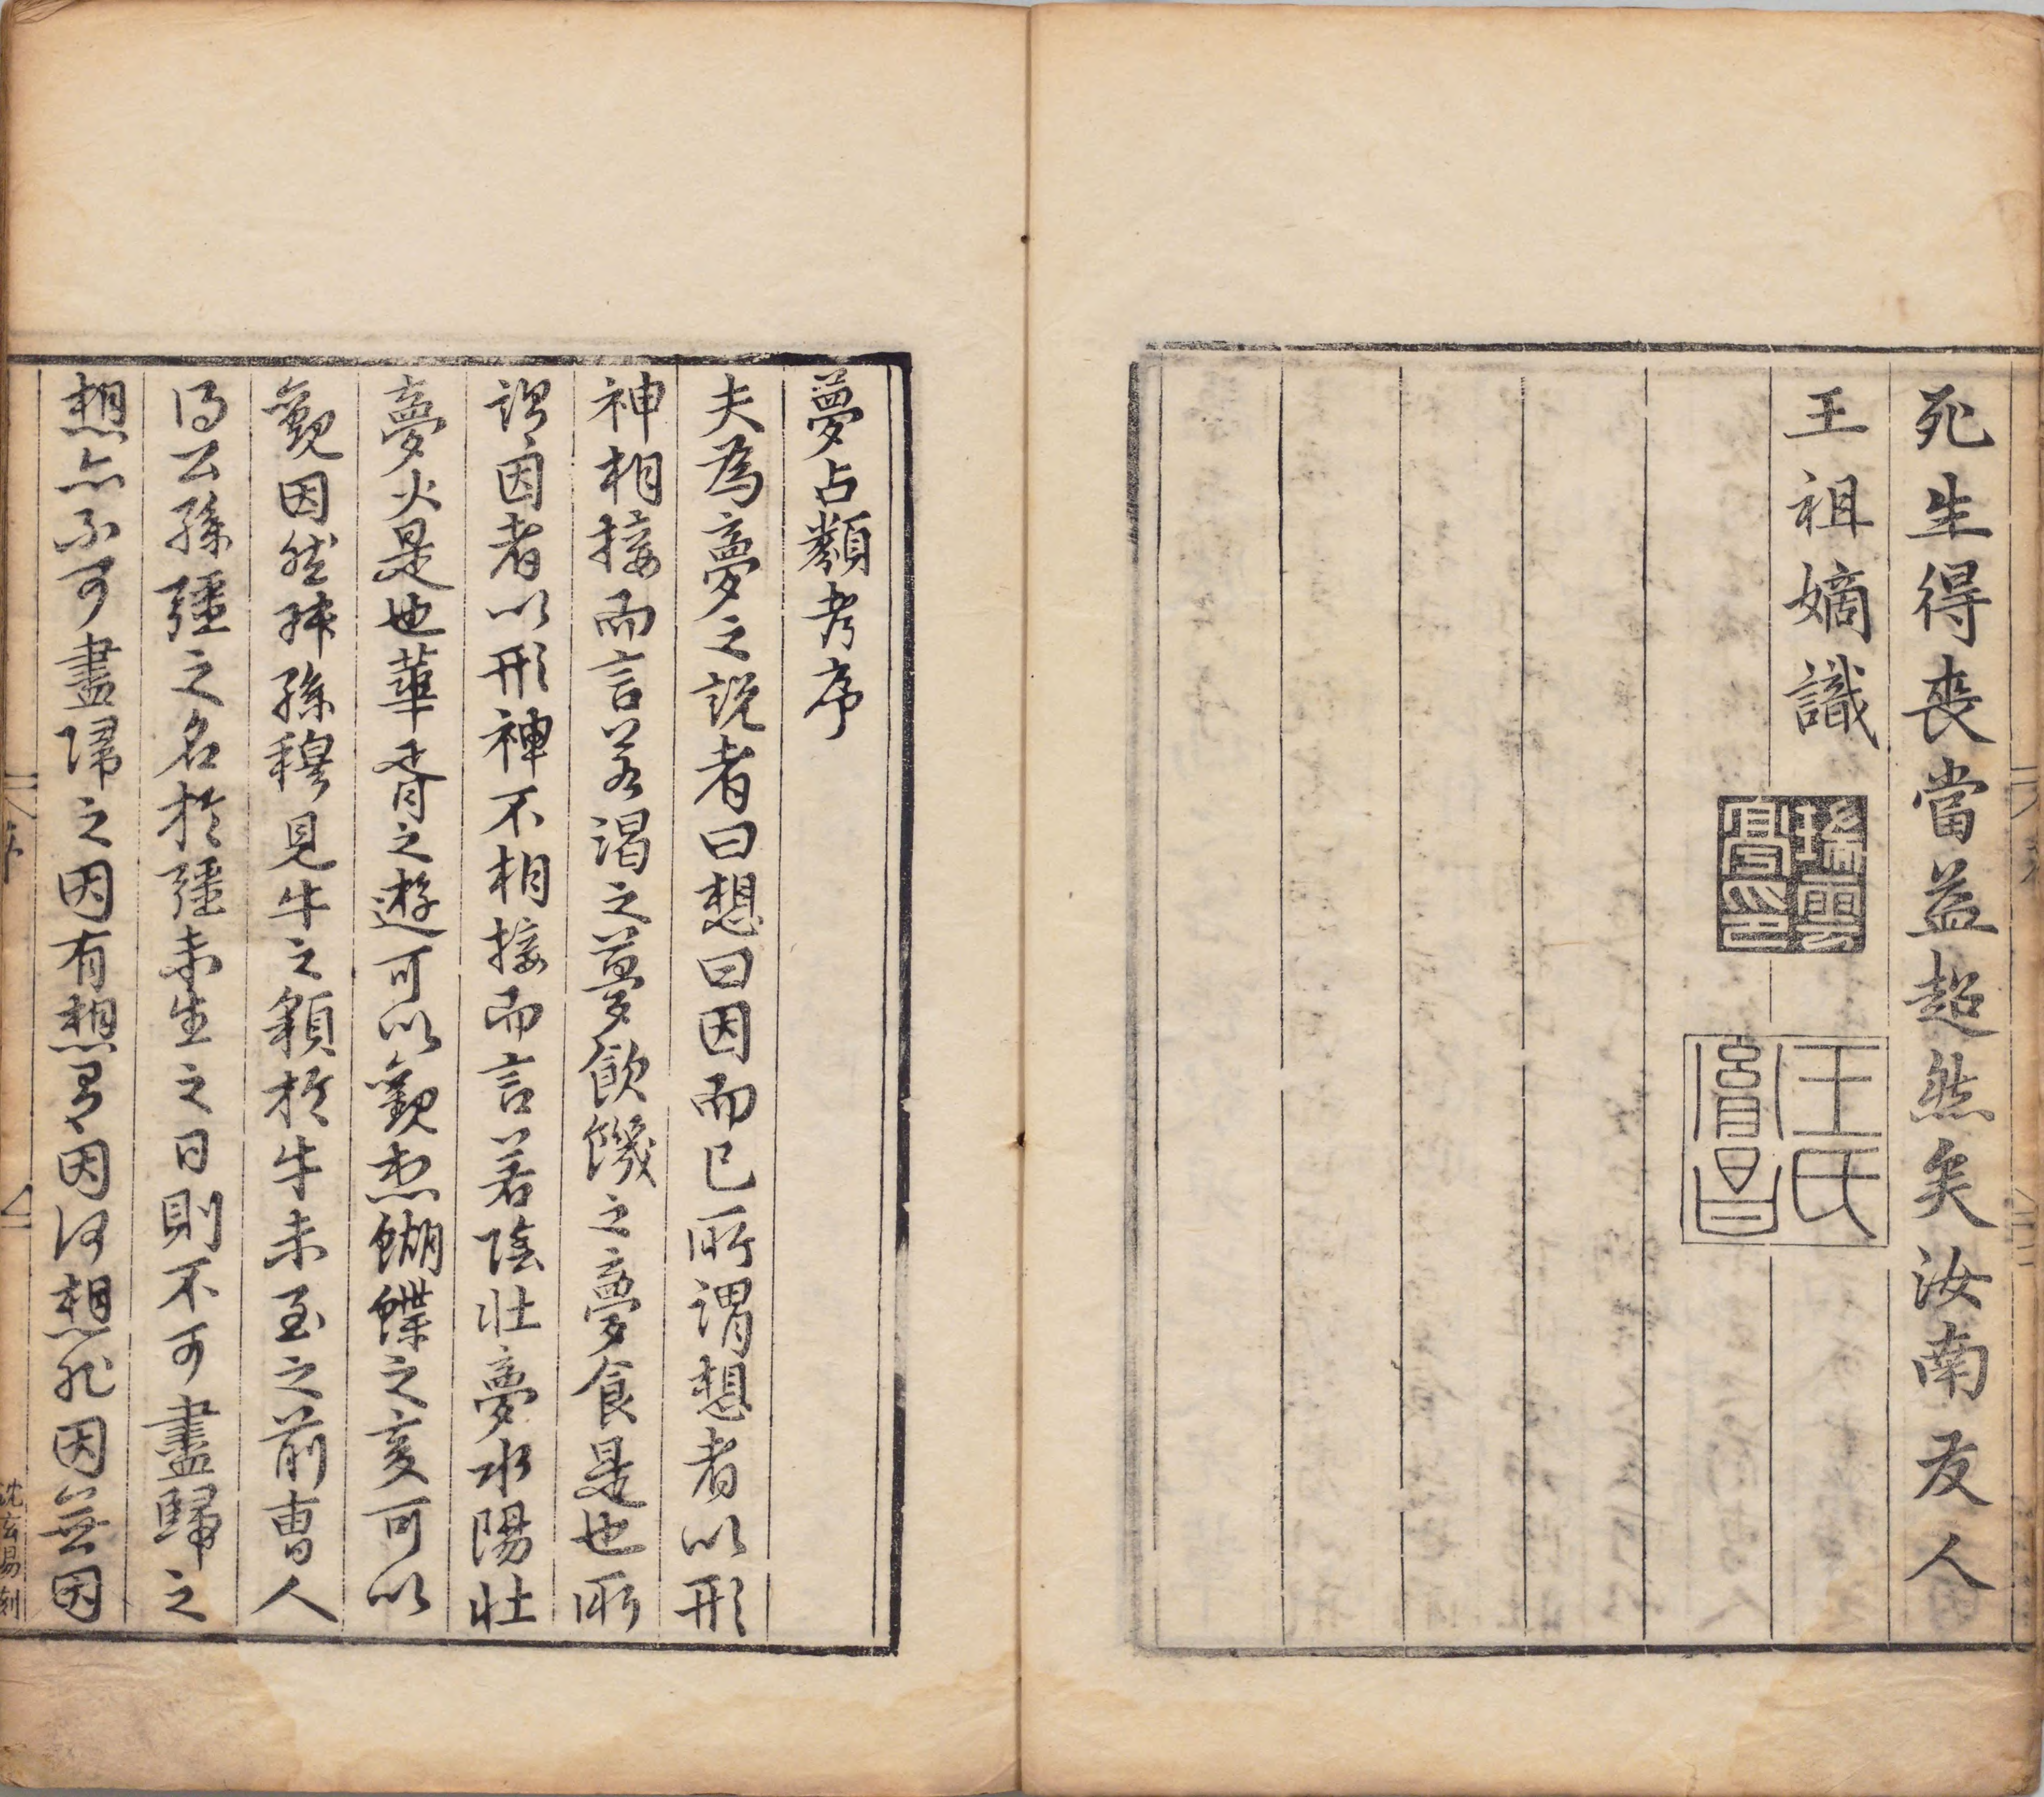 死生得喪當益超然矣汝南友人
王祖嫡識
瑞雲
王氏
夢占類考序
夫為夢之說者曰想曰因而已所謂想者以形
神相接而言若渴之夢飲饑之夢食是也所
謂因者以形神不相接而言若陰壯夢水陽壯
夢火是也華胥之遊可以觀想蝴蝶之變可以
觀因然叔孫穆見牛之貌於牛未至之前曹人
得公孫彊之名於彊未生之日則不可盡歸之
想亦不可盡歸之因有想有因何想非因無因
序
沈玄易刻